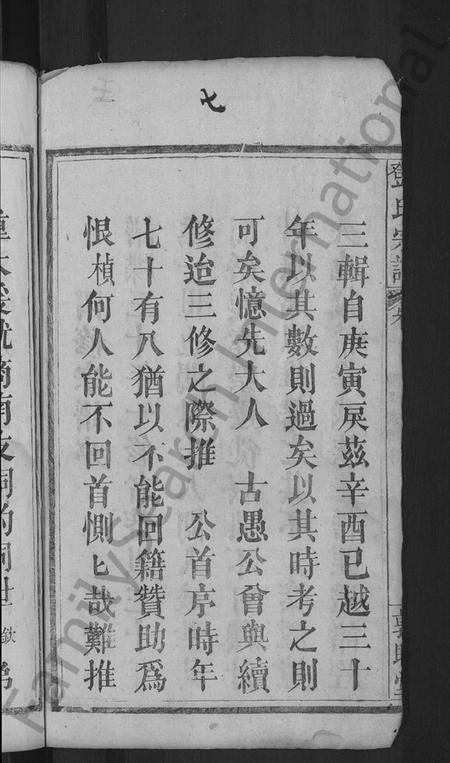 七
三輯自庚寅戾茲辛酉已越三十
年以其數則過矣以其時考之則
可矣憶先大人　古愚公曾與續
修迨三修之際推　公首序時年
七十有八猶以不能回籍贊助為
恨楨何人能不回首惻匕哉難推
鄧氏宗譜
FamilySearch International